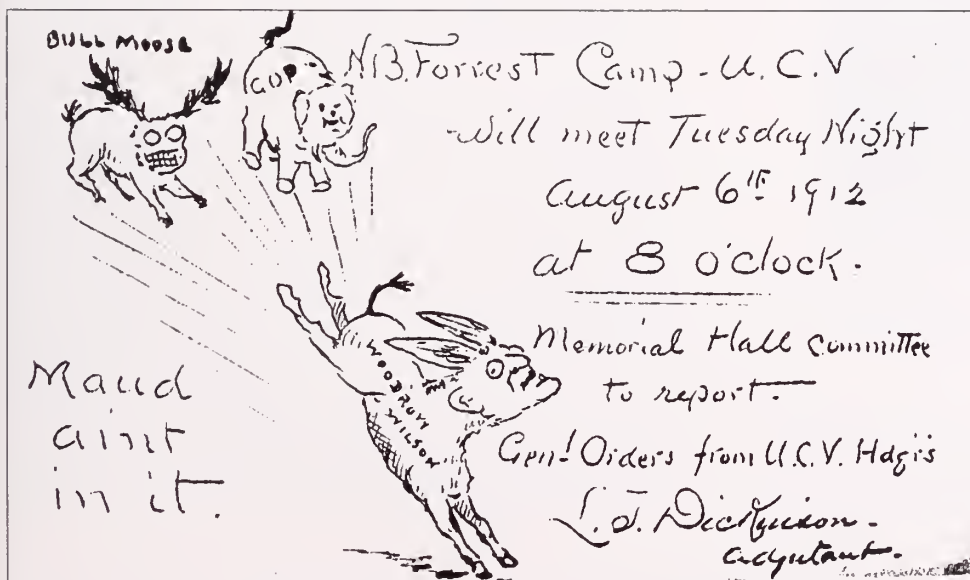 BULL MOOSE
GOP
N.B. Forrest Camp - U.C.V
will meet Tuesday Night
August 6th 1912
at 8 o'clock.
Memorial Hall committee
to report.
Gen'l Orders from U.C.V. Hdq'rs
L. T. Dickinson.
adjutant.
WOODROW
WILSON
Maud
aint
in it.